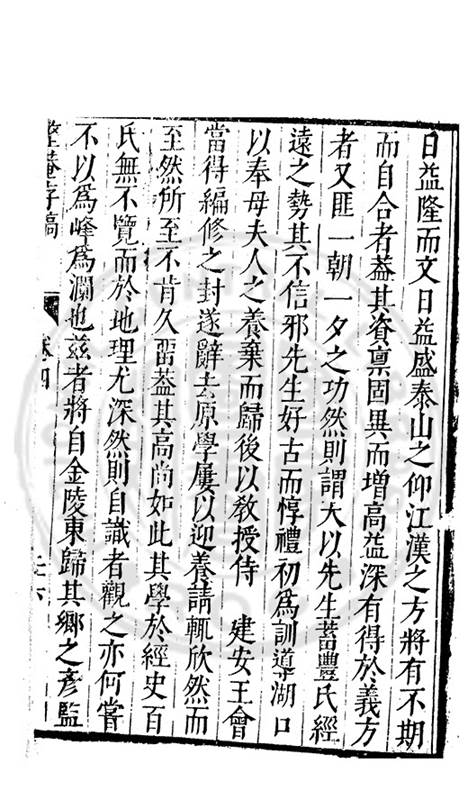 日益隆而文日益盛泰山之仰江漢之方將有不期
而自合者葢其資禀固異而增高益深有得於義方
者又匪一朝一夕之功然則謂天以先生蓄豐氏經
遠之勢其不信邪先生好古而惇禮初爲訓導湖口
以奉母夫人之養棄而歸後以敎授侍 建安王會
當得編修之封遂辭去原學屢以迎養請輒欣然而
至然所至不肯久畱葢其高尚如此其學於經史百
氏無不覽而於地理尤深然則自識者觀之亦何嘗
不以爲峰爲瀾也兹者將自金陵東歸其鄉之彦監
菴存稿
卷四